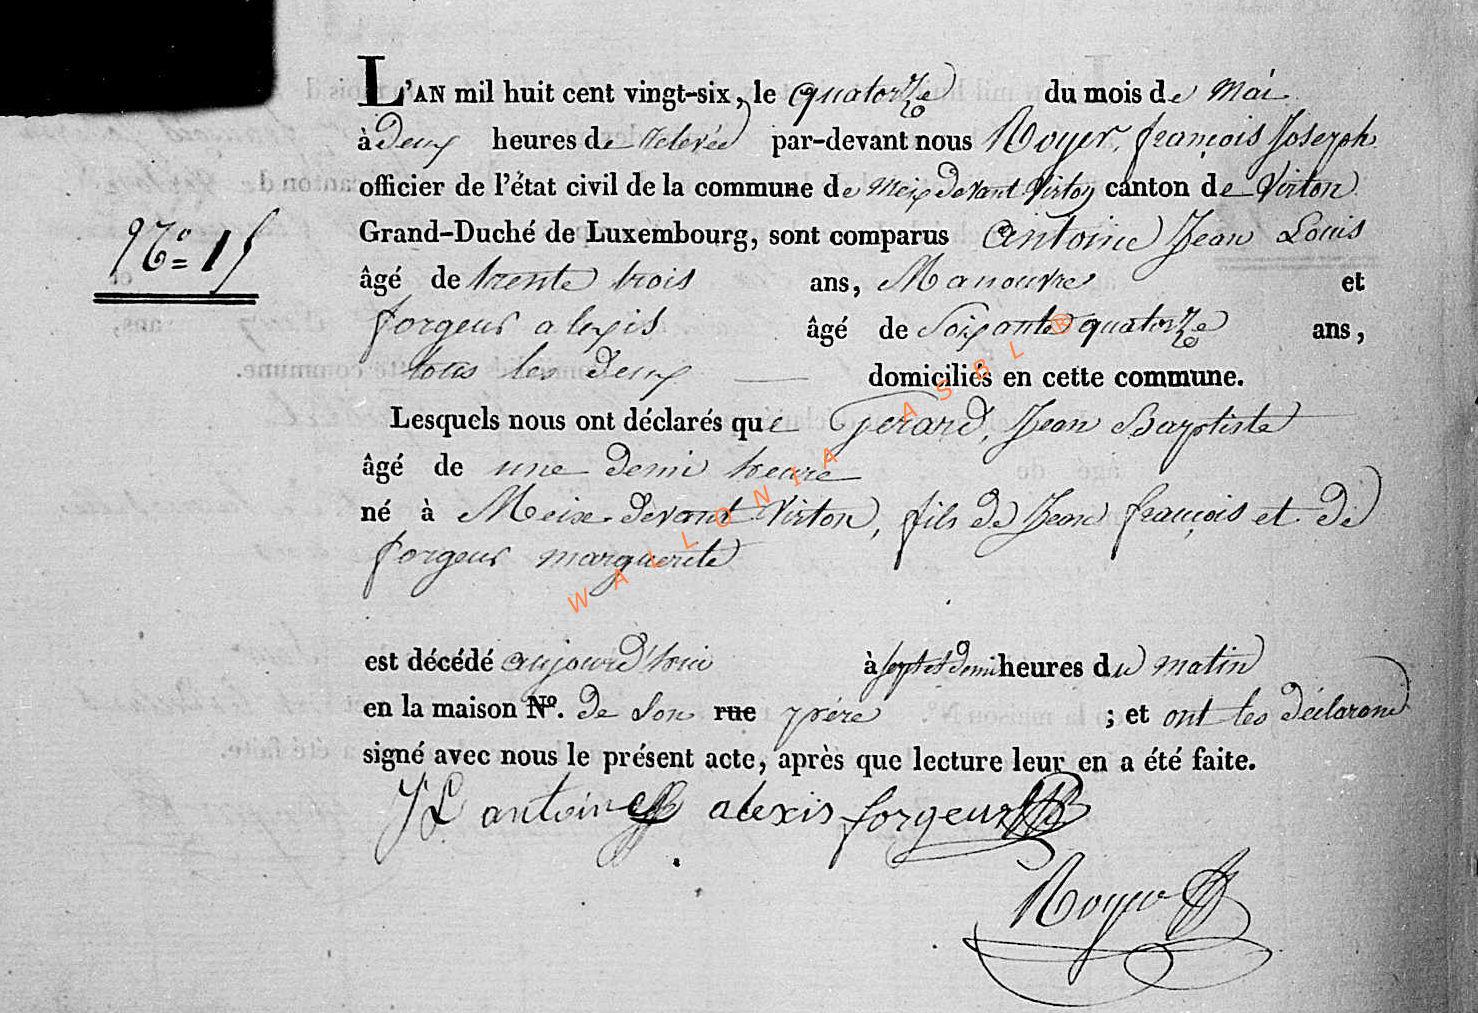 L'AN mil huit cent vingt-six, le quatorze du mois de mai
à deux heures de relevée par-devant nous Royer, françois Joseph
officier de l'état civil de la commune de Meix devant Virton canton de Virton
N.o 15
Grand-Duché de Luxembourg, sont comparus antoine Jean Louis
âgé de trente trois ans, Manouvre et
forgeur alexis âgé de Soixante quatorze ans,
tous les deux domiciliés en cette commune.
Lesquels nous ont déclarés que Gerard, Jean Baptiste
âgé de une demi heure
né à Meix devant Virton, fils de Jean françois et de
forgeur marguerite
est décédé aujourd'hui à sept et demi heures du matin
en la maison No. de son rue père ; et ont les déclarans
signé avec nous le présent acte, après que lecture leur en a été faite.
JL antoine alexis forgeur
Royer
WALLONIA ASBL ®